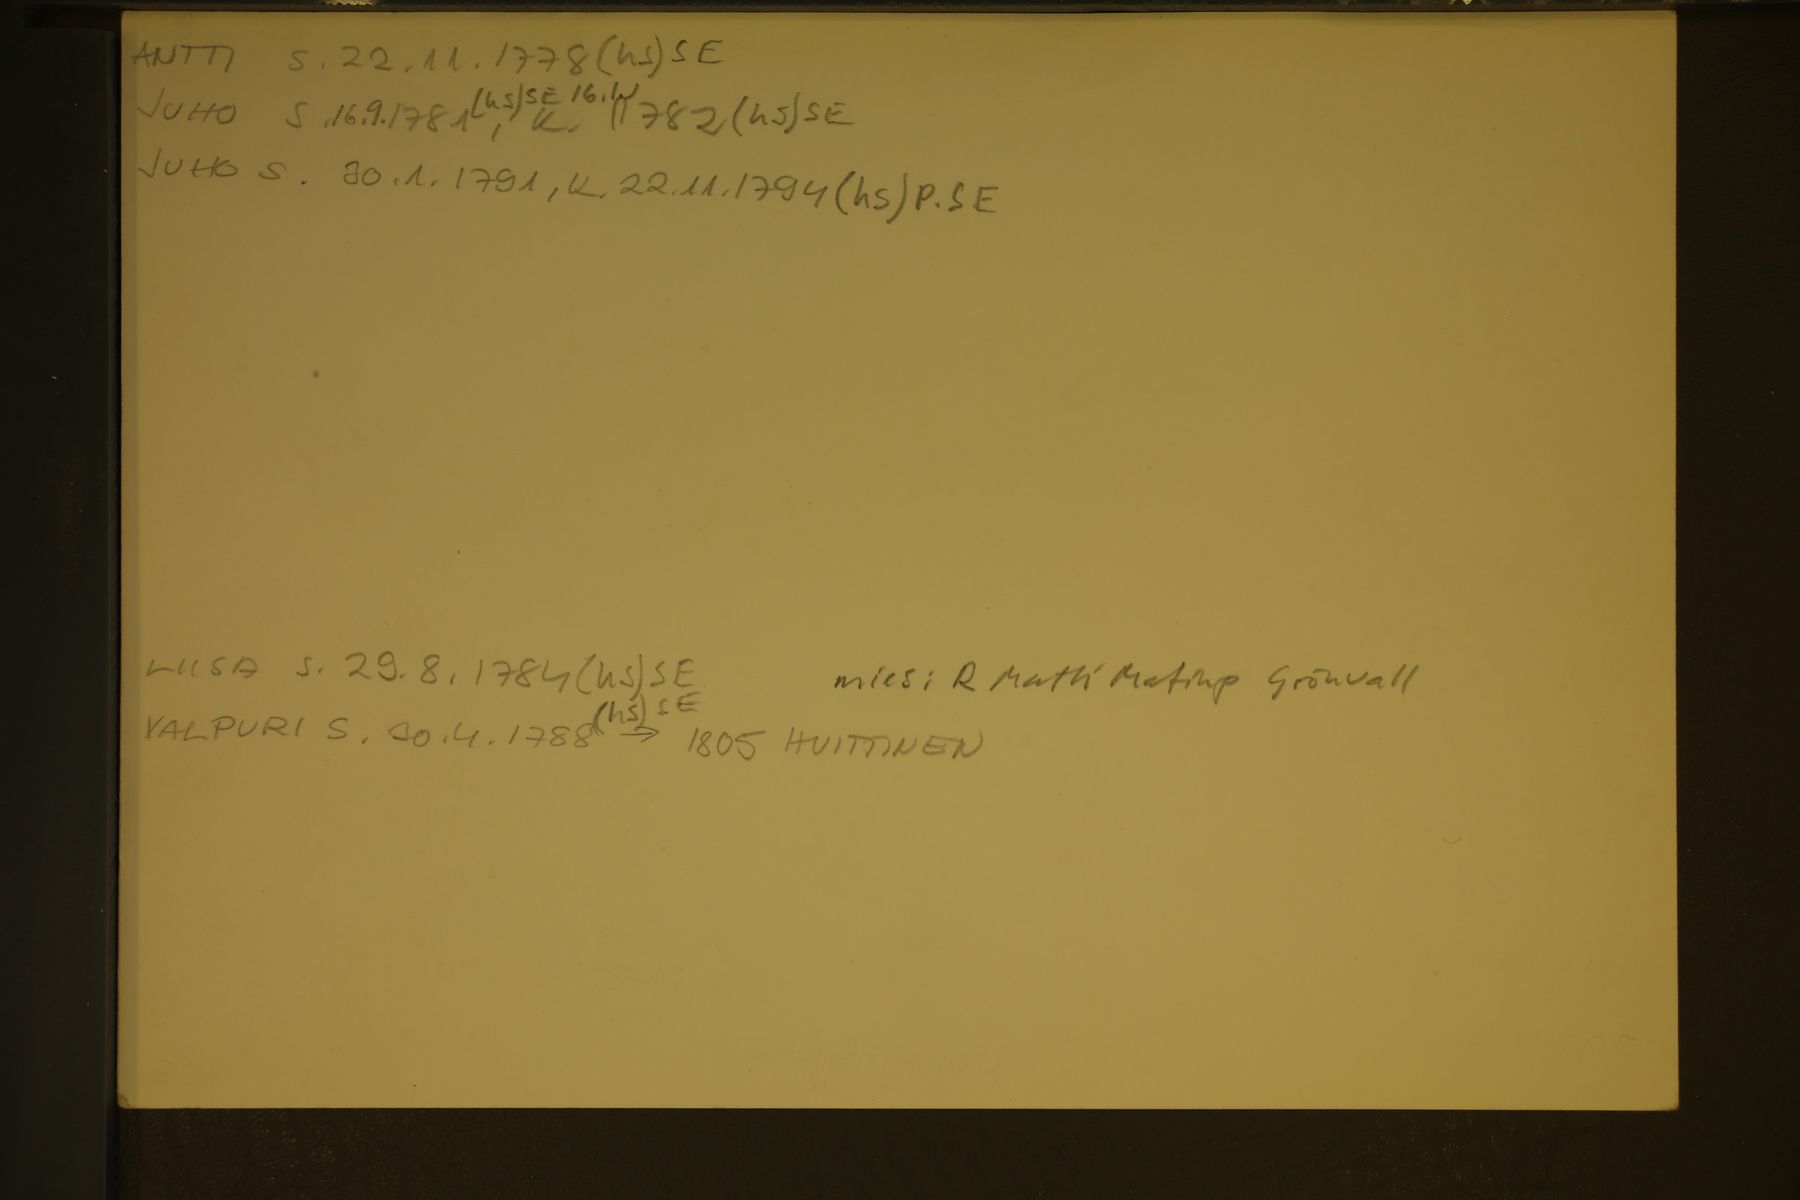 ANTTI S. 22.11.1778 (hs) SE
JUHO S. 16.9.1781 (hs) SE, K. 16.11.1782 (hs) SE
JUHO S. 30.1.1791, K. 22.11.1794 (hs) P.SE
LIISA S. 29.8.1784 (hs) SE mies: R Matti Matinp Grönvall
VALPURI S. 30.4.1788 (hs) SE → 1805 HUITTINEN